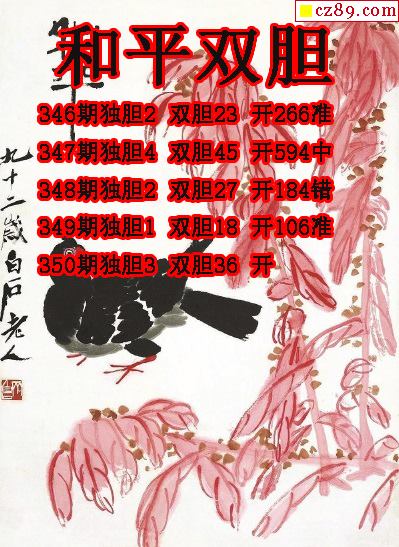 cz89.com
和平双胆
346期独胆2 双胆23 开266准
347期独胆4 双胆45 开594中
348期独胆2 双胆27 开184错
349期独胆1 双胆18 开106准
350期独胆3 双胆36 开
九十二岁白石老人